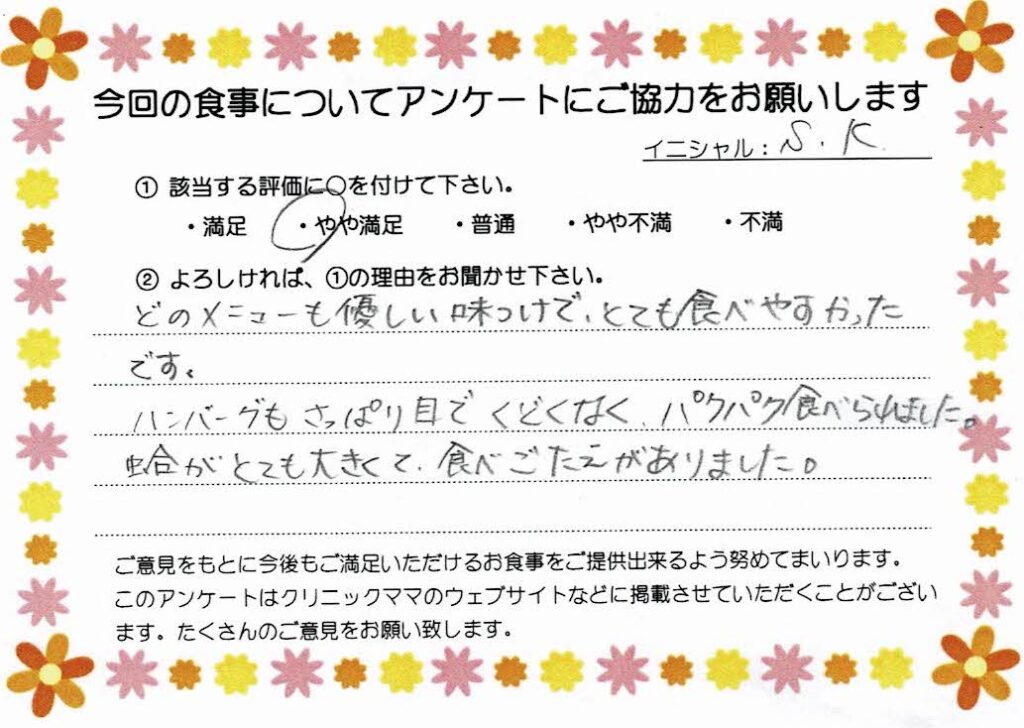 今回の食事についてアンケートにご協力をお願いします
イニシャル：S.K.
① 該当する評価に○を付けて下さい。
・満足 ・やや満足 ・普通 ・やや不満 ・不満
② よろしければ、①の理由をお聞かせ下さい。
どのメニューも優しい味つけで、とても食べやすかった
です。
ハンバーグもさっぱり目でくどくなく、パクパク食べられました。
蛤がとても大きくて、食べごたえがありました。
ご意見をもとに今後もご満足いただけるお食事をご提供出来るよう努めてまいります。
このアンケートはクリニックママのウェブサイトなどに掲載させていただくことがござい
ます。たくさんのご意見をお願い致します。